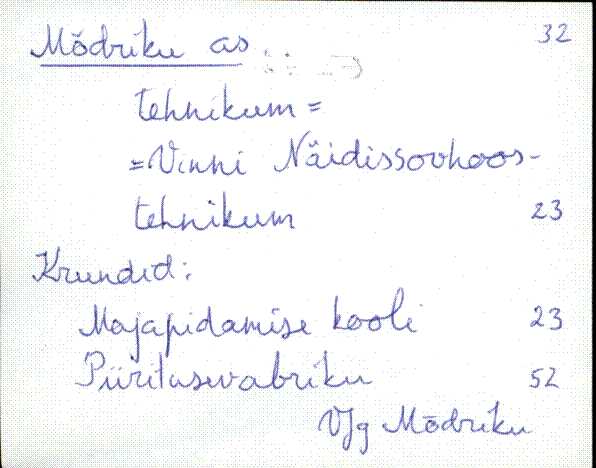 Mõdriku as 32
tehnikum =
= Vinni Näidissovhoos-
tehnikum 23
Krundid:
Majapidamise kooli 23
Piiritusevabriku 52
VJg Mõdriku